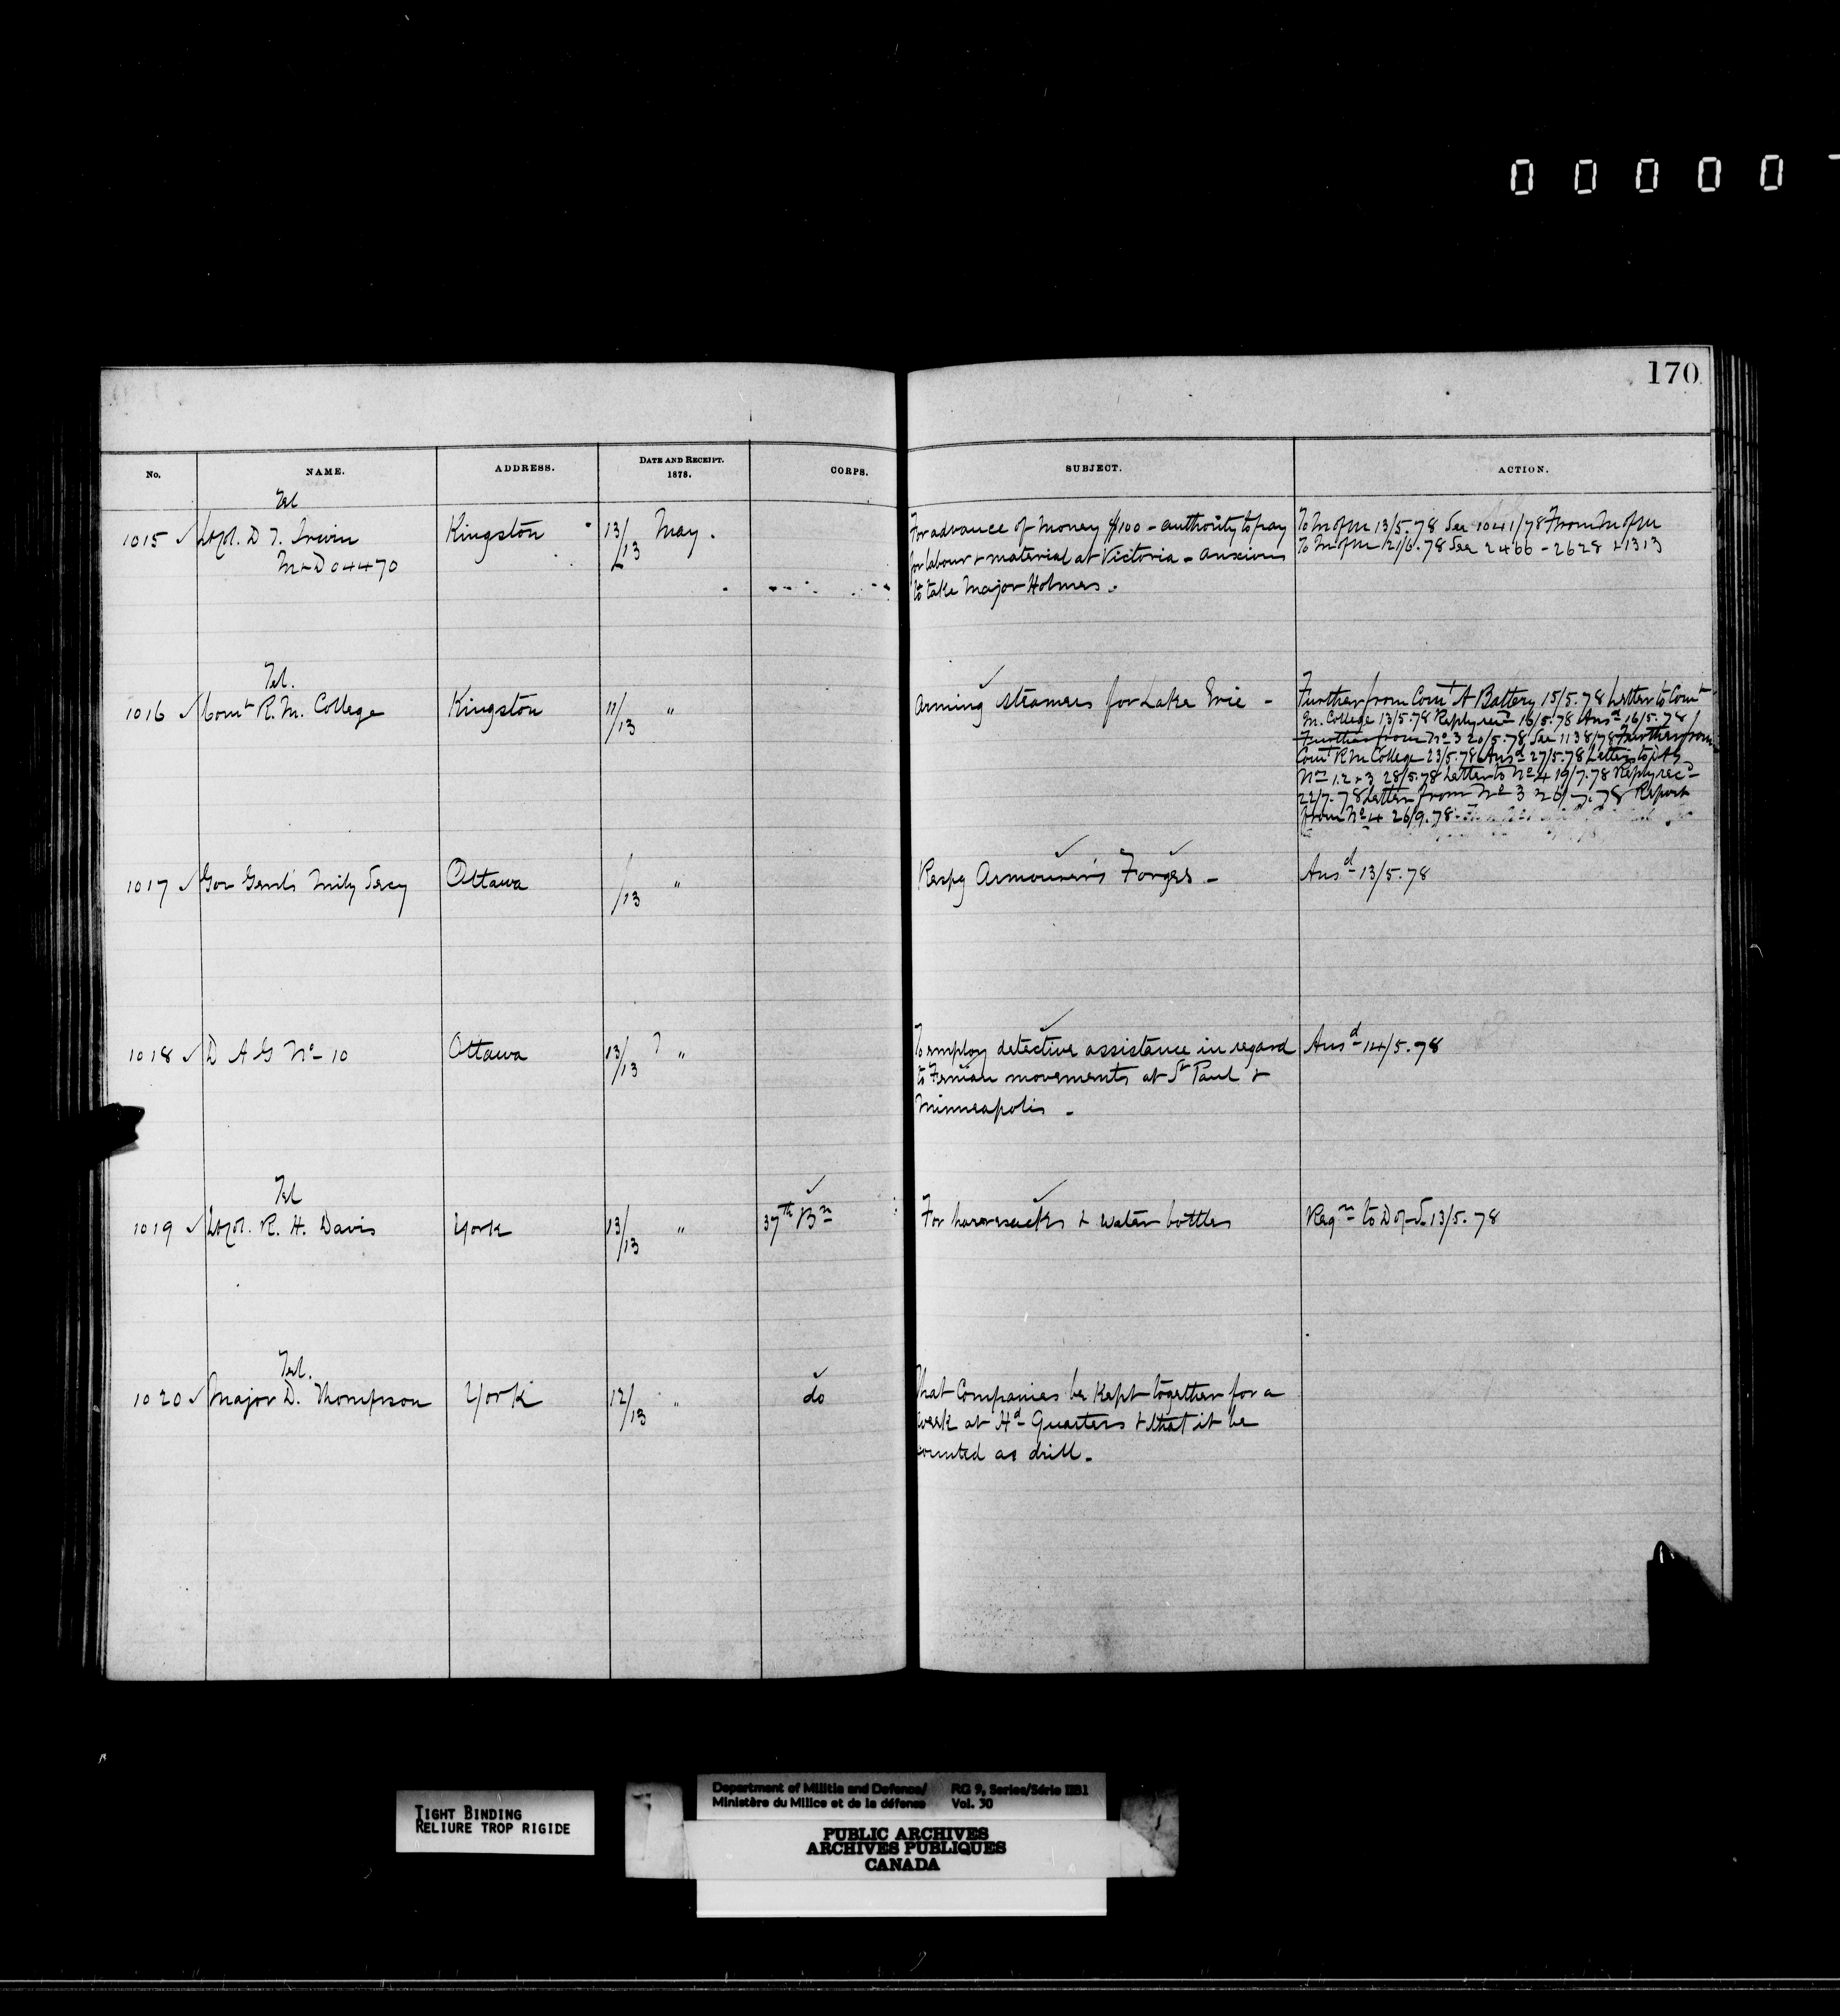 0 0 0 0 0
170
No. NAME. ADDRESS. DATE AND RECEIPT. 1878. CORPS. SUBJECT. ACTION.
Tel
1015 Lt Col. D T. Irwin Kingston 13/13 May. For advance of money $100 - authority to pay To M of M 13/5.78 See 1041/78 From M of M
M & D 04470 for labour & material at Victoria - anxious To M of M 12/6.78 See 2466 - 2628 & 1313
to take Major Holmes.
Tel.
1016 Comt R. M. College Kingston 11/13 " Arming steamers for Lake Erie - Further from Comt A Battery 15/5.78 Letter to Comt
M. College 13/5.78 Reply recd 16/5.78 Ansd 16/5.78
Further from No 3 20/5.78 See 1138/78 Further from
Comt R M College 23/5.78 Ansd 27/5.78 Letters to DAG
Nos 1.2 & 3 28/5.78 Letter to No 4 19/7.78 Reply recd
22/7.78 Letter from No 3 26/7.78 Report
from No 4 26/9.78
1017 Gov Genl's Mily Secy Ottawa /13 " Respg Armourer's Forges - Ansd 13/5.78
1018 D A G No 10 Ottawa 13/13 ? " To employ detective assistance in regard Ansd 14/5.78
to Fenian movements at St Paul &
Minneapolis -
Tel
1019 Lt Col. R. H. Davis York 13/13 " 37th Bn For haversacks & water bottles Reqn to D of S 13/5.78
Tel.
1020 Major D. Thompson York 12/13 " do That Companies be kept together for a
week at Hd Quarters & that it be
counted as drill.
TIGHT BINDING
RELIURE TROP RIGIDE
Department of Militia and Defence/ RG 9, Series/Série IIB1
Ministère du Milice et de la défense Vol. 30
PUBLIC ARCHIVES
ARCHIVES PUBLIQUES
CANADA